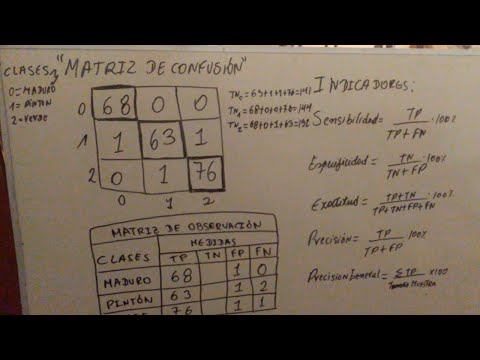 CLASES "MATRIZ DE CONFUSIÓN"
0=MADURO
1=PINTON
2=VERDE
0 68 0 0
1 1 63 1
2 0 1 76
0 1 2
TN0=63+1+1+76=141
TN1=68+0+0+76=144
TN2=68+0+1+63=132
INDICADORES:
Sensibilidad= TP / TP+FN .100%
Especificidad= TN / TN+FP .100%
Exactitud= TP+TN / TP+TN+FP+FN .100%
Precisión= TP / TP+FP 100%
Precision General= ΣTP / Tamaño MUESTRA x100
MATRIZ DE OBSERVACIÓN
CLASES MEDIDAS
TP TN FP FN
MADURO 68 1 0
PINTÓN 63 1 2
76 1 1